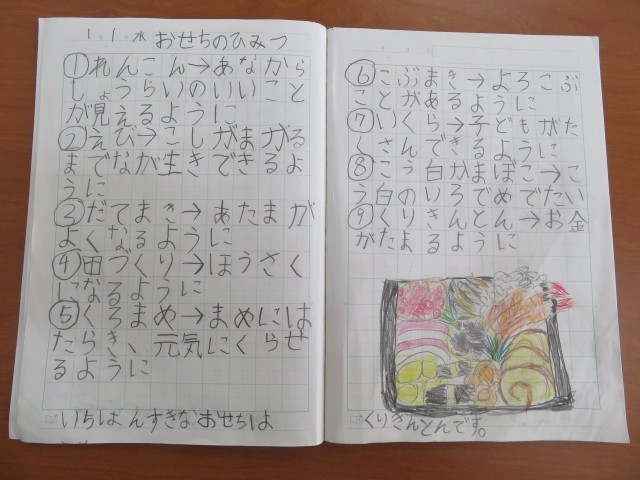 1 1 水 おせちのひみつ
①れんこん→あなから
しょうらいのいいこと
が見えるように
②えび→こしがまがる
までなが生きできるよ
うに
③だてまき→あたまが
よくなるように
④田づくり→ほうさく
になるように
⑤くろまめ→まめには
たらき、元気にくらせ
るように
いちばんすきなおせちは
⑥こぶまき→よろこぶ
ことがあるように
⑦いくら→子どもがた
くさんできるように
⑧こう白かまぼこ→こ
う白のいろでめでたい
⑨くりきんとん→お金
がたまるように
くりきんとんです。